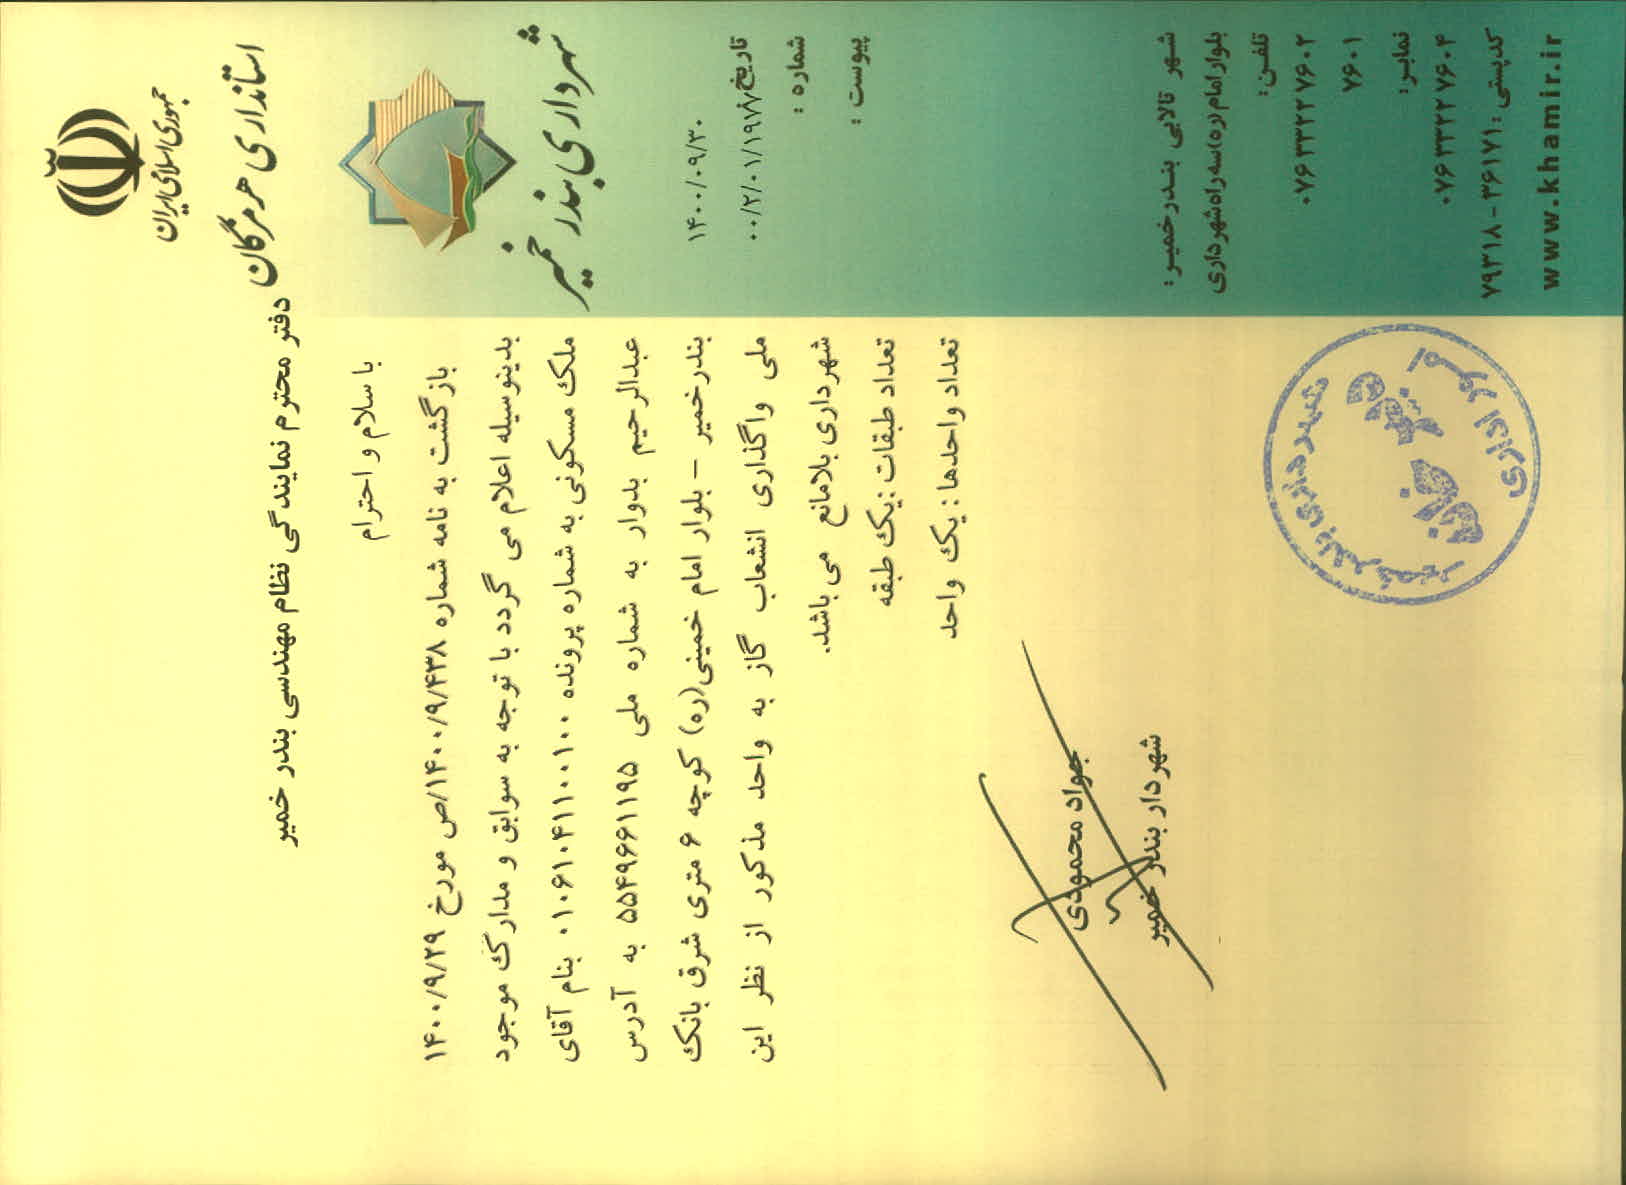 جمهوری اسلامی ایران
استانداری هرمزگان
شهرداری بندر خمیر
۱۴۰۰/۰۹/۳۰
تاریخ
۰۰/۲/۰۱/۱۹۸۷
شماره :
پیوست :
شهر تالابی بندرخمیر:
بلوار امام(ره)سه راه شهرداری
تلفن:
۰۷۶۳۳۲۲۷۶۰۲
۷۶۰۱
نمابر:
۰۷۶۳۳۲۲۷۶۰۴
کدپستی:۳۶۱۷۱-۷۹۳۱۸
www.khamir.ir
دفتر محترم نمایندگی نظام مهندسی بندر خمیر
با سلام و احترام
بازگشت به نامه شماره ۱۴۰۰/۹/۴۳۸/ص مورخ ۱۴۰۰/۹/۲۹
بدینوسیله اعلام می گردد با توجه به سوابق و مدارک موجود
ملک مسکونی به شماره پرونده ۰۱۰۶۱۰۴۱۱۰۰۱۰۰ بنام آقای
عبدالرحیم بدوار به شماره ملی ۵۵۴۹۶۶۱۱۹۵ به آدرس
بندرخمیر – بلوار امام خمینی(ره) کوچه ۶ متری شرق بانک
ملی واگذاری انشعاب گاز به واحد مذکور از نظر این
شهرداری بلامانع می باشد.
تعداد طبقات :یک طبقه
تعداد واحدها : یک واحد
جواد محمودی
شهردار بندر خمیر
شهرداری بندر خمیر
امور اداری